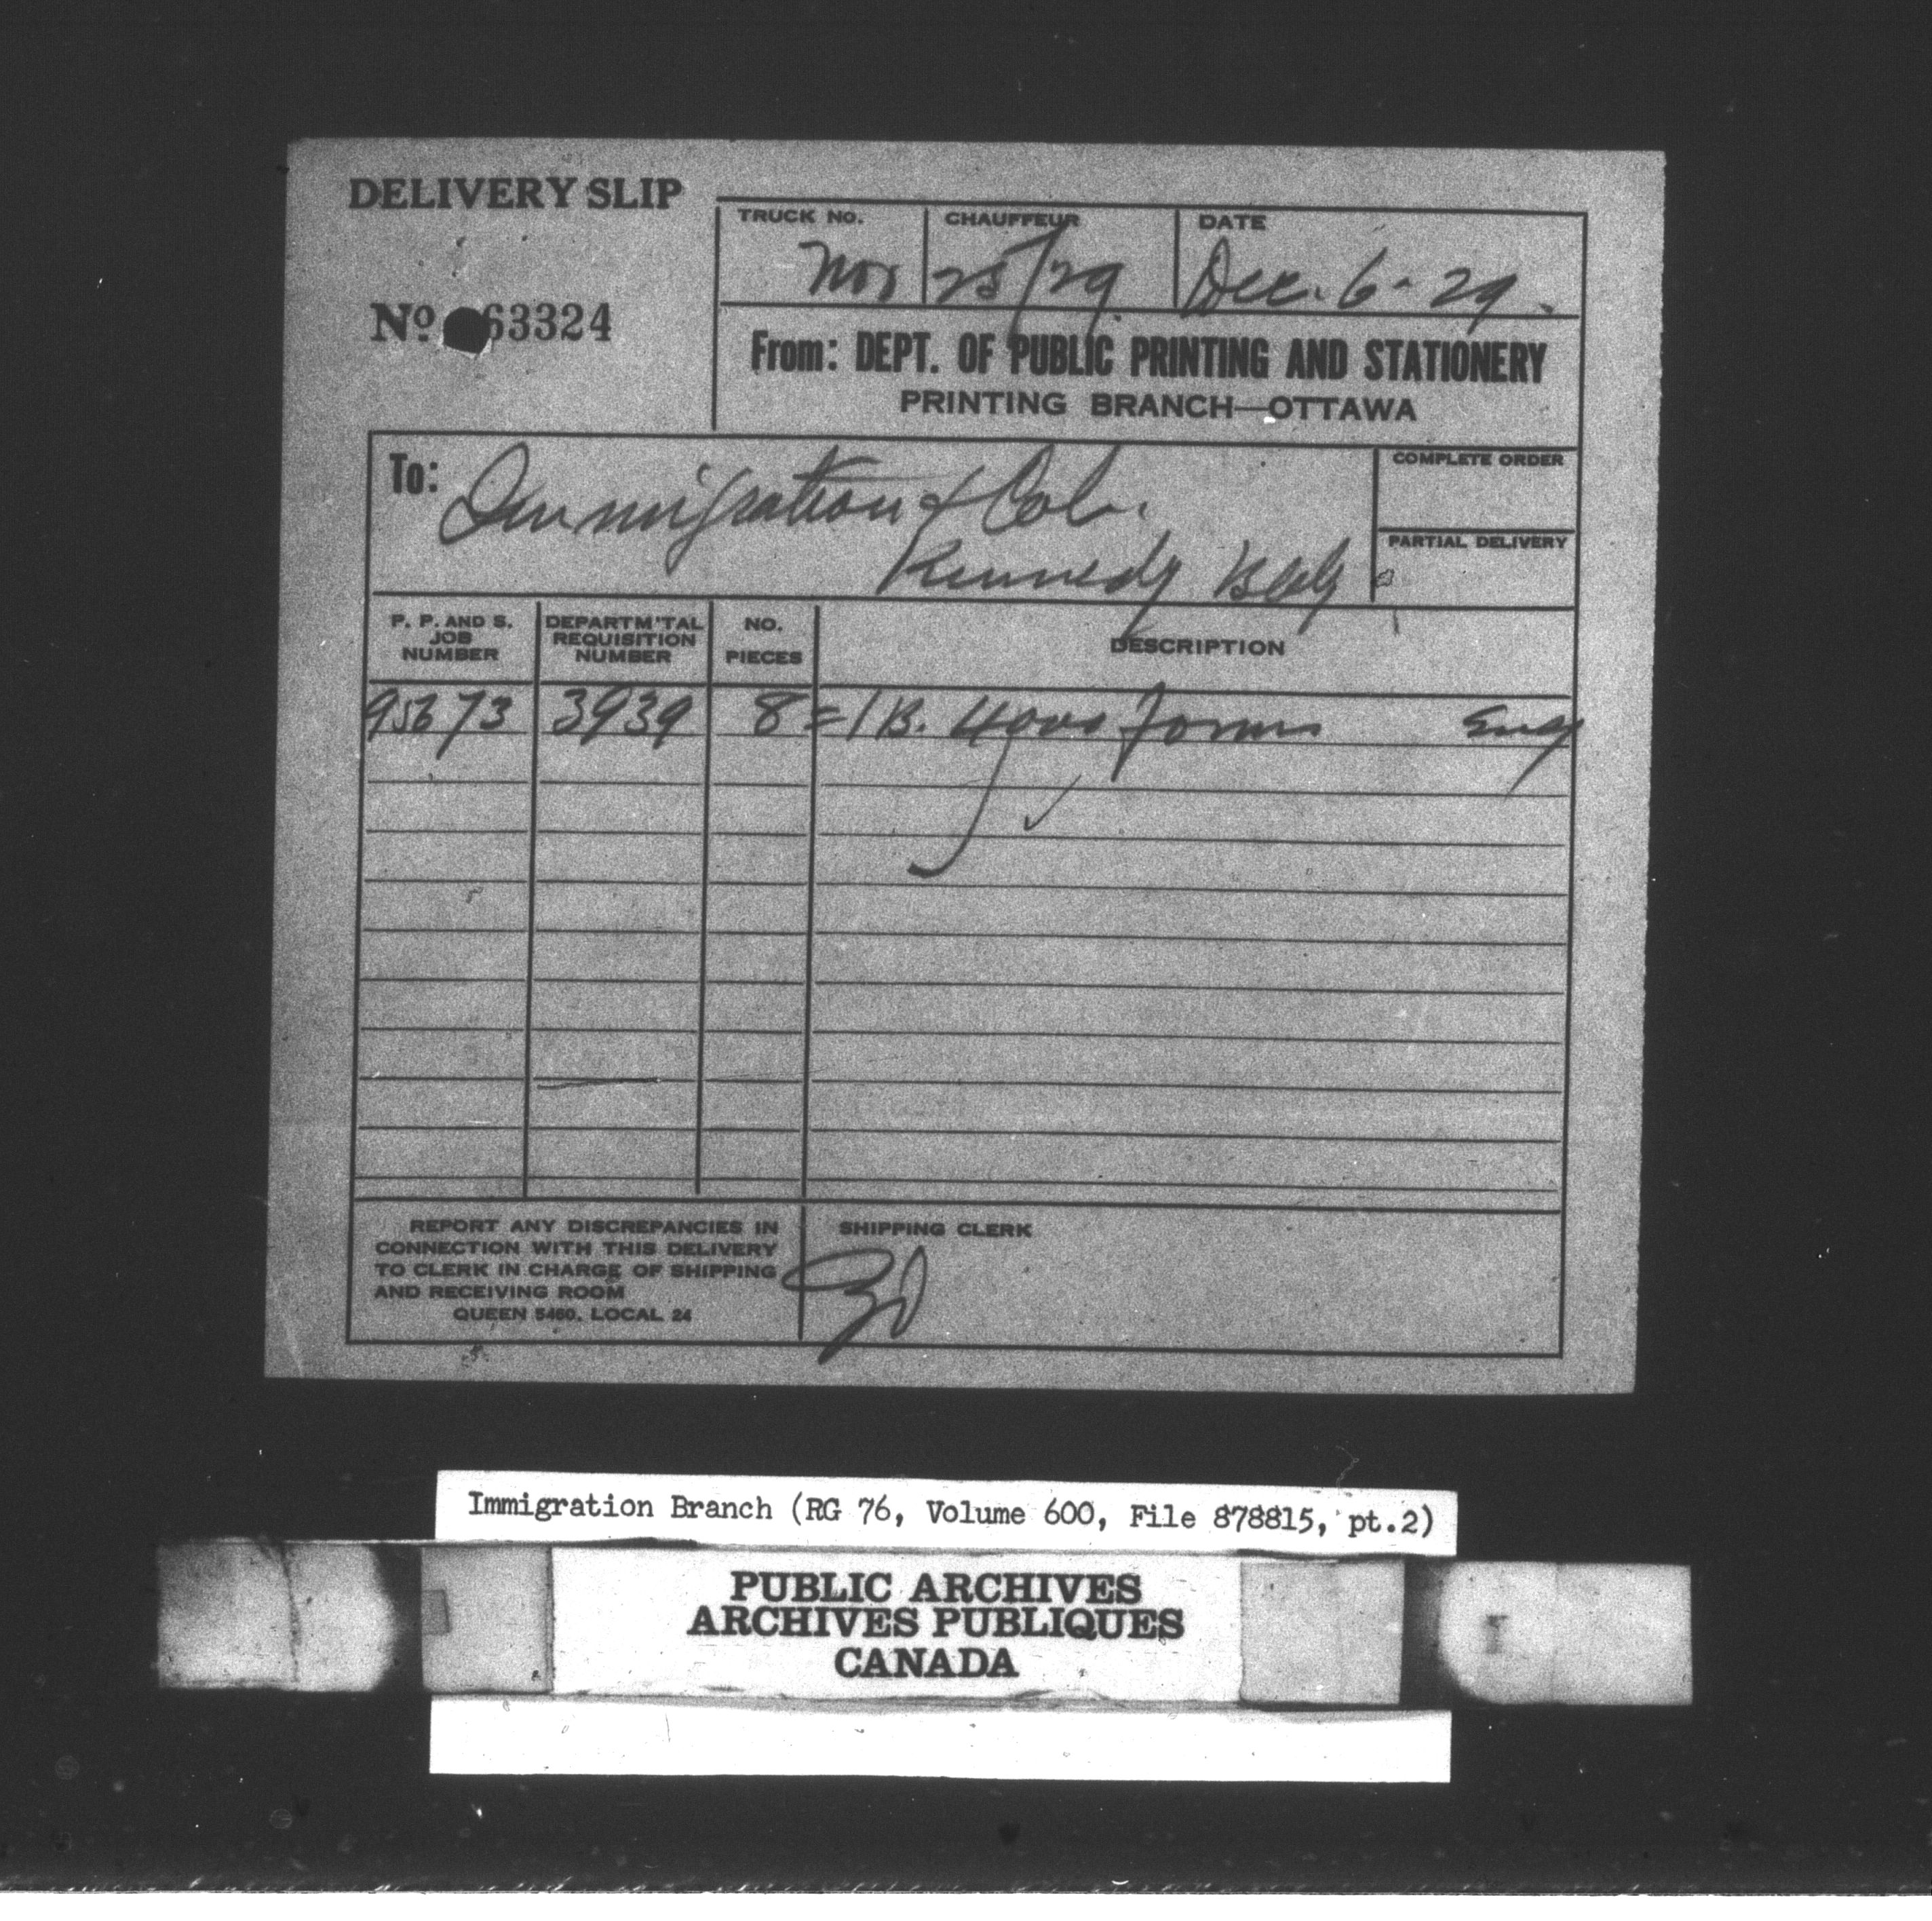 DELIVERY SLIP
No 63324
TRUCK NO. CHAUFFEUR DATE
Nov 25/29 Dec. 6-29.
From: DEPT. OF PUBLIC PRINTING AND STATIONERY
PRINTING BRANCH—OTTAWA
To: Immigration & Col.
Kennedy Bldg
COMPLETE ORDER
PARTIAL DELIVERY
P. P. AND S. JOB NUMBER
DEPARTM'TAL REQUISITION NUMBER
NO. PIECES
DESCRIPTION
95673 3939 8 = 1 B. 4000 forms Eng
REPORT ANY DISCREPANCIES IN
CONNECTION WITH THIS DELIVERY
TO CLERK IN CHARGE OF SHIPPING
AND RECEIVING ROOM
QUEEN 5460, LOCAL 24
SHIPPING CLERK
Immigration Branch (RG 76, Volume 600, File 878815, pt.2)
PUBLIC ARCHIVES
ARCHIVES PUBLIQUES
CANADA